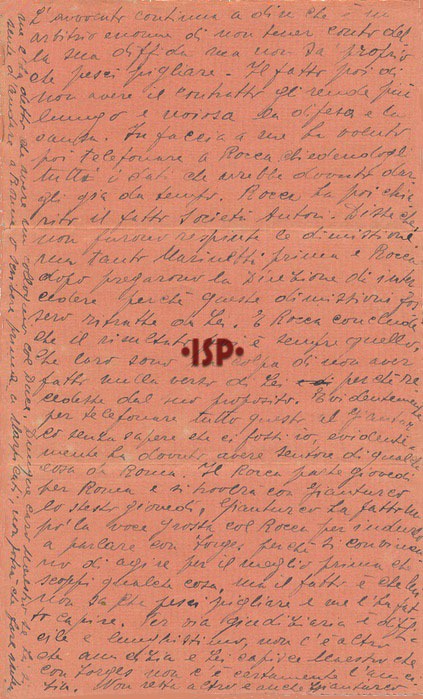 L'avvocato continua a dire che è un
arbitrio enorme di non tener conto del
la sua diffida ma non sa proprio
che pesci pigliare. Il fatto poi di
non avere il contratto gli rende più
lunga e noiosa la difesa e la
causa. In faccia a me ha voluto
poi telefonare a Rocca chiedendogli
tutti i dati che avrebbe dovuto dar
gli già da tempo. Rocca ha poi chia
rito il fatto Società Autori. Disse che
non furono respinte le dimissioni
ma tanto Marinetti prima e Rocca
dopo pregarono la Direzione di inter
cedere perché queste dimissioni fos
sero ritirate da Lei. E Rocca conclude
che il risultato è sempre quello,
che loro sono colpa di non aver
fatto nulla verso di Lei perché re
cedesse dal suo proposito. Evidentemente
per telefonare tutto questo al Gianturco
senza sapere che ci fossi io, evidente
mente ha dovuto avere sentore di qualche
cosa da Roma. Il Rocca parte giovedì
per Roma e si troverà con Gianturco
lo stesso giovedì, Gianturco ha fatto un
po' la voce grossa col Rocca per indurlo
a parlare con Forges perché si convincano
di agire per il meglio prima che
scoppi qualche cosa, ma il fatto è che lui
non sa che pesci pigliare e me l'ha fat
to capire. Per via giudiziaria è diffi
cile e lunghissimo, non c'è altro
che amicizia e Lei capisce Maestro che
con Forges non c'è certamente l'amici
zia. Non resta altro e anche Gianturco
me l'ha detto che avere un colloquio col Duce. Dunque caro Maestro se Lei
venire a Roma o
•ISP•